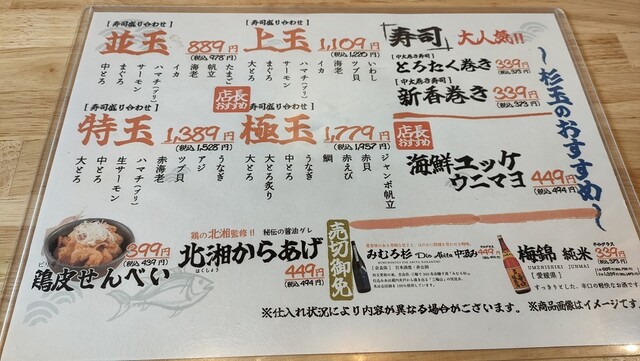 [寿司盛り合わせ]
並玉 889円
(税込978円)
たまご
帆立
海老
イカ
ハマチ(ブリ)
サーモン
まぐろ
中とろ
[寿司盛り合わせ]
上玉 1,109円
(税込1,220円)
いわし
ツブ貝
海老
イカ
ハマチ(ブリ)
サーモン
まぐろ
中とろ
大とろ
「寿司」大人気!!
[中太巻き寿司]
とろたく巻き 339円
(税込373円)
[中太巻き寿司]
新香巻き 339円
(税込373円)
~杉玉のおすすめ~
[寿司盛り合わせ]
特玉 1,389円
(税込1,528円)
うなぎ
アジ
ツブ貝
赤海老
ハマチ(ブリ)
生サーモン
中とろ
大とろ
店長おすすめ
[寿司盛り合わせ]
極玉 1,779円
(税込1,957円)
ジャンボ帆立
赤貝
赤えび
鯛
うなぎ
中とろ
大とろ炙り
大とろ
店長おすすめ
海鮮ユッケ
ウニマヨ
449円
(税込494円)
399円
(税込439円)
鶏皮せんべい
鶏の北湘監修!! 秘伝の醤油ダレ
北湘からあげ
はくしょう
449円
(税込494円)
売切御免
みむろ杉 Dio Abita 中温め
449円
(税込494円)
[奈良県]
梅錦 純米
UMENISHIKI JUNMAI
[愛媛県]
339円
(税込373円)
すっきりとした、辛口の軽快なお酒です。
※仕入れ状況により内容が異なる場合がございます。
※商品画像はイメージです。